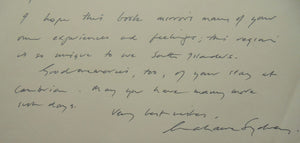 I hope this book mirrors many of your
own experiences and feelings; this region
is so unique to we South Islanders.
Good memories, too, of your stay at
Cambrian. May you have many more
such days.
Very best wishes,
Grahame Sydney